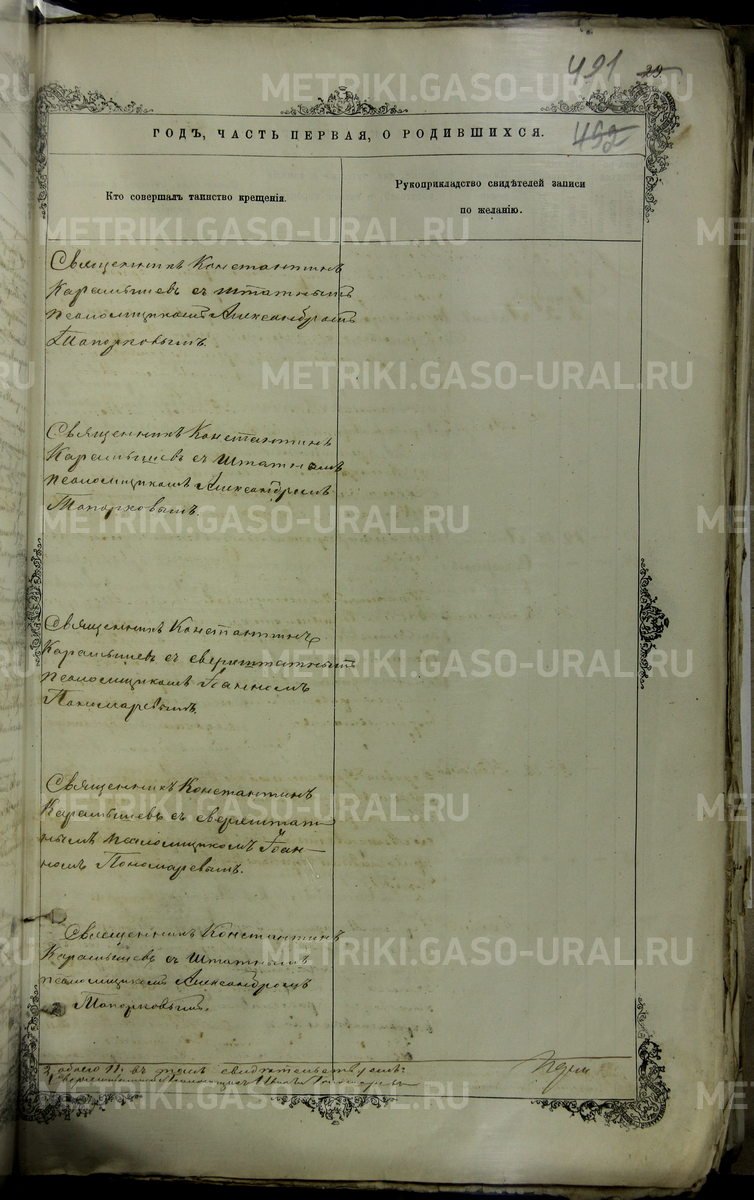 491 39
492
ГОДЪ, ЧАСТЬ ПЕРВАЯ, О РОДИВШИХСЯ.
Кто совершалъ таинство крещенія.
Рукоприкладство свидѣтелей записи
по желанію.
Священникъ Константинъ
Карамышевъ съ штатнымъ
псаломщикомъ Александромъ
Топорковымъ.
Священникъ Константинъ
Карамышевъ съ штатнымъ
псаломщикомъ Александромъ
Топорковымъ.
Священникъ Константинъ
Карамышевъ съ сверхштатнымъ
псаломщикомъ Іоанномъ
Пономаревымъ.
Священникъ Константинъ
Карамышевъ съ сверхштат-
нымъ псаломщикомъ Іоан-
номъ Пономаревымъ.
Священникъ Константинъ
Карамышевъ съ штатнымъ
псаломщикомъ Александромъ
Топорковымъ.
обоего 11. въ томъ свидѣтельствуемъ:
METRIKI.GASO-URAL.RU